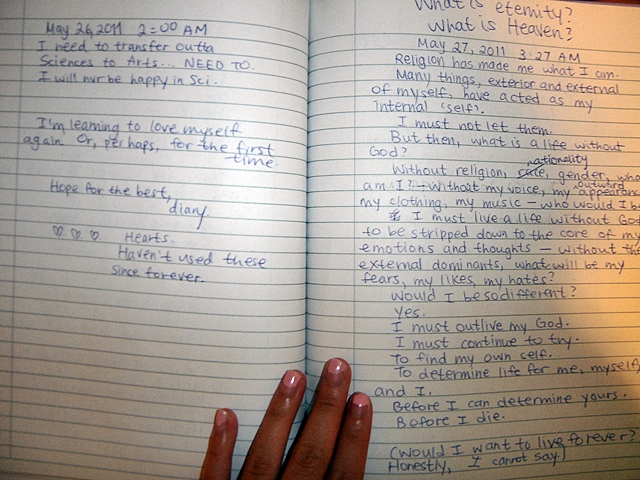 May 26, 2011 2:00 AM
I need to transfer outta
Sciences to Arts... NEED TO.
I will nvr be happy in Sci.
I'm learning to love myself
again Or, perhaps, for the first
time.
Hope for the best,
diary.
♡ ♡ ♡ Hearts.
Haven't used these
since forever.
What is eternity?
What is Heaven?
May 27, 2011 3:27 AM
Religion has made me what I am.
Many things, exterior and external
of myself, have acted as my
internal 'self'.
I must not let them.
But then, what is a life without
God?
nationality
Without religion, race, gender, who
outward
am I? - Without my voice, my appearan
my clothing, my music - who would I b
I must live a life without God
to be stripped down to the core of my
emotions and thoughts - without the
external dominants, what will be my
fears, my likes, my hates?
Would I be so different?
Yes.
I must outlive my God.
I must continue to try.
To find my own self.
To determine life for me, myself,
and I.
Before I can determine yours.
Before I die.
(Would I want to live forever?
Honestly, I cannot say.)